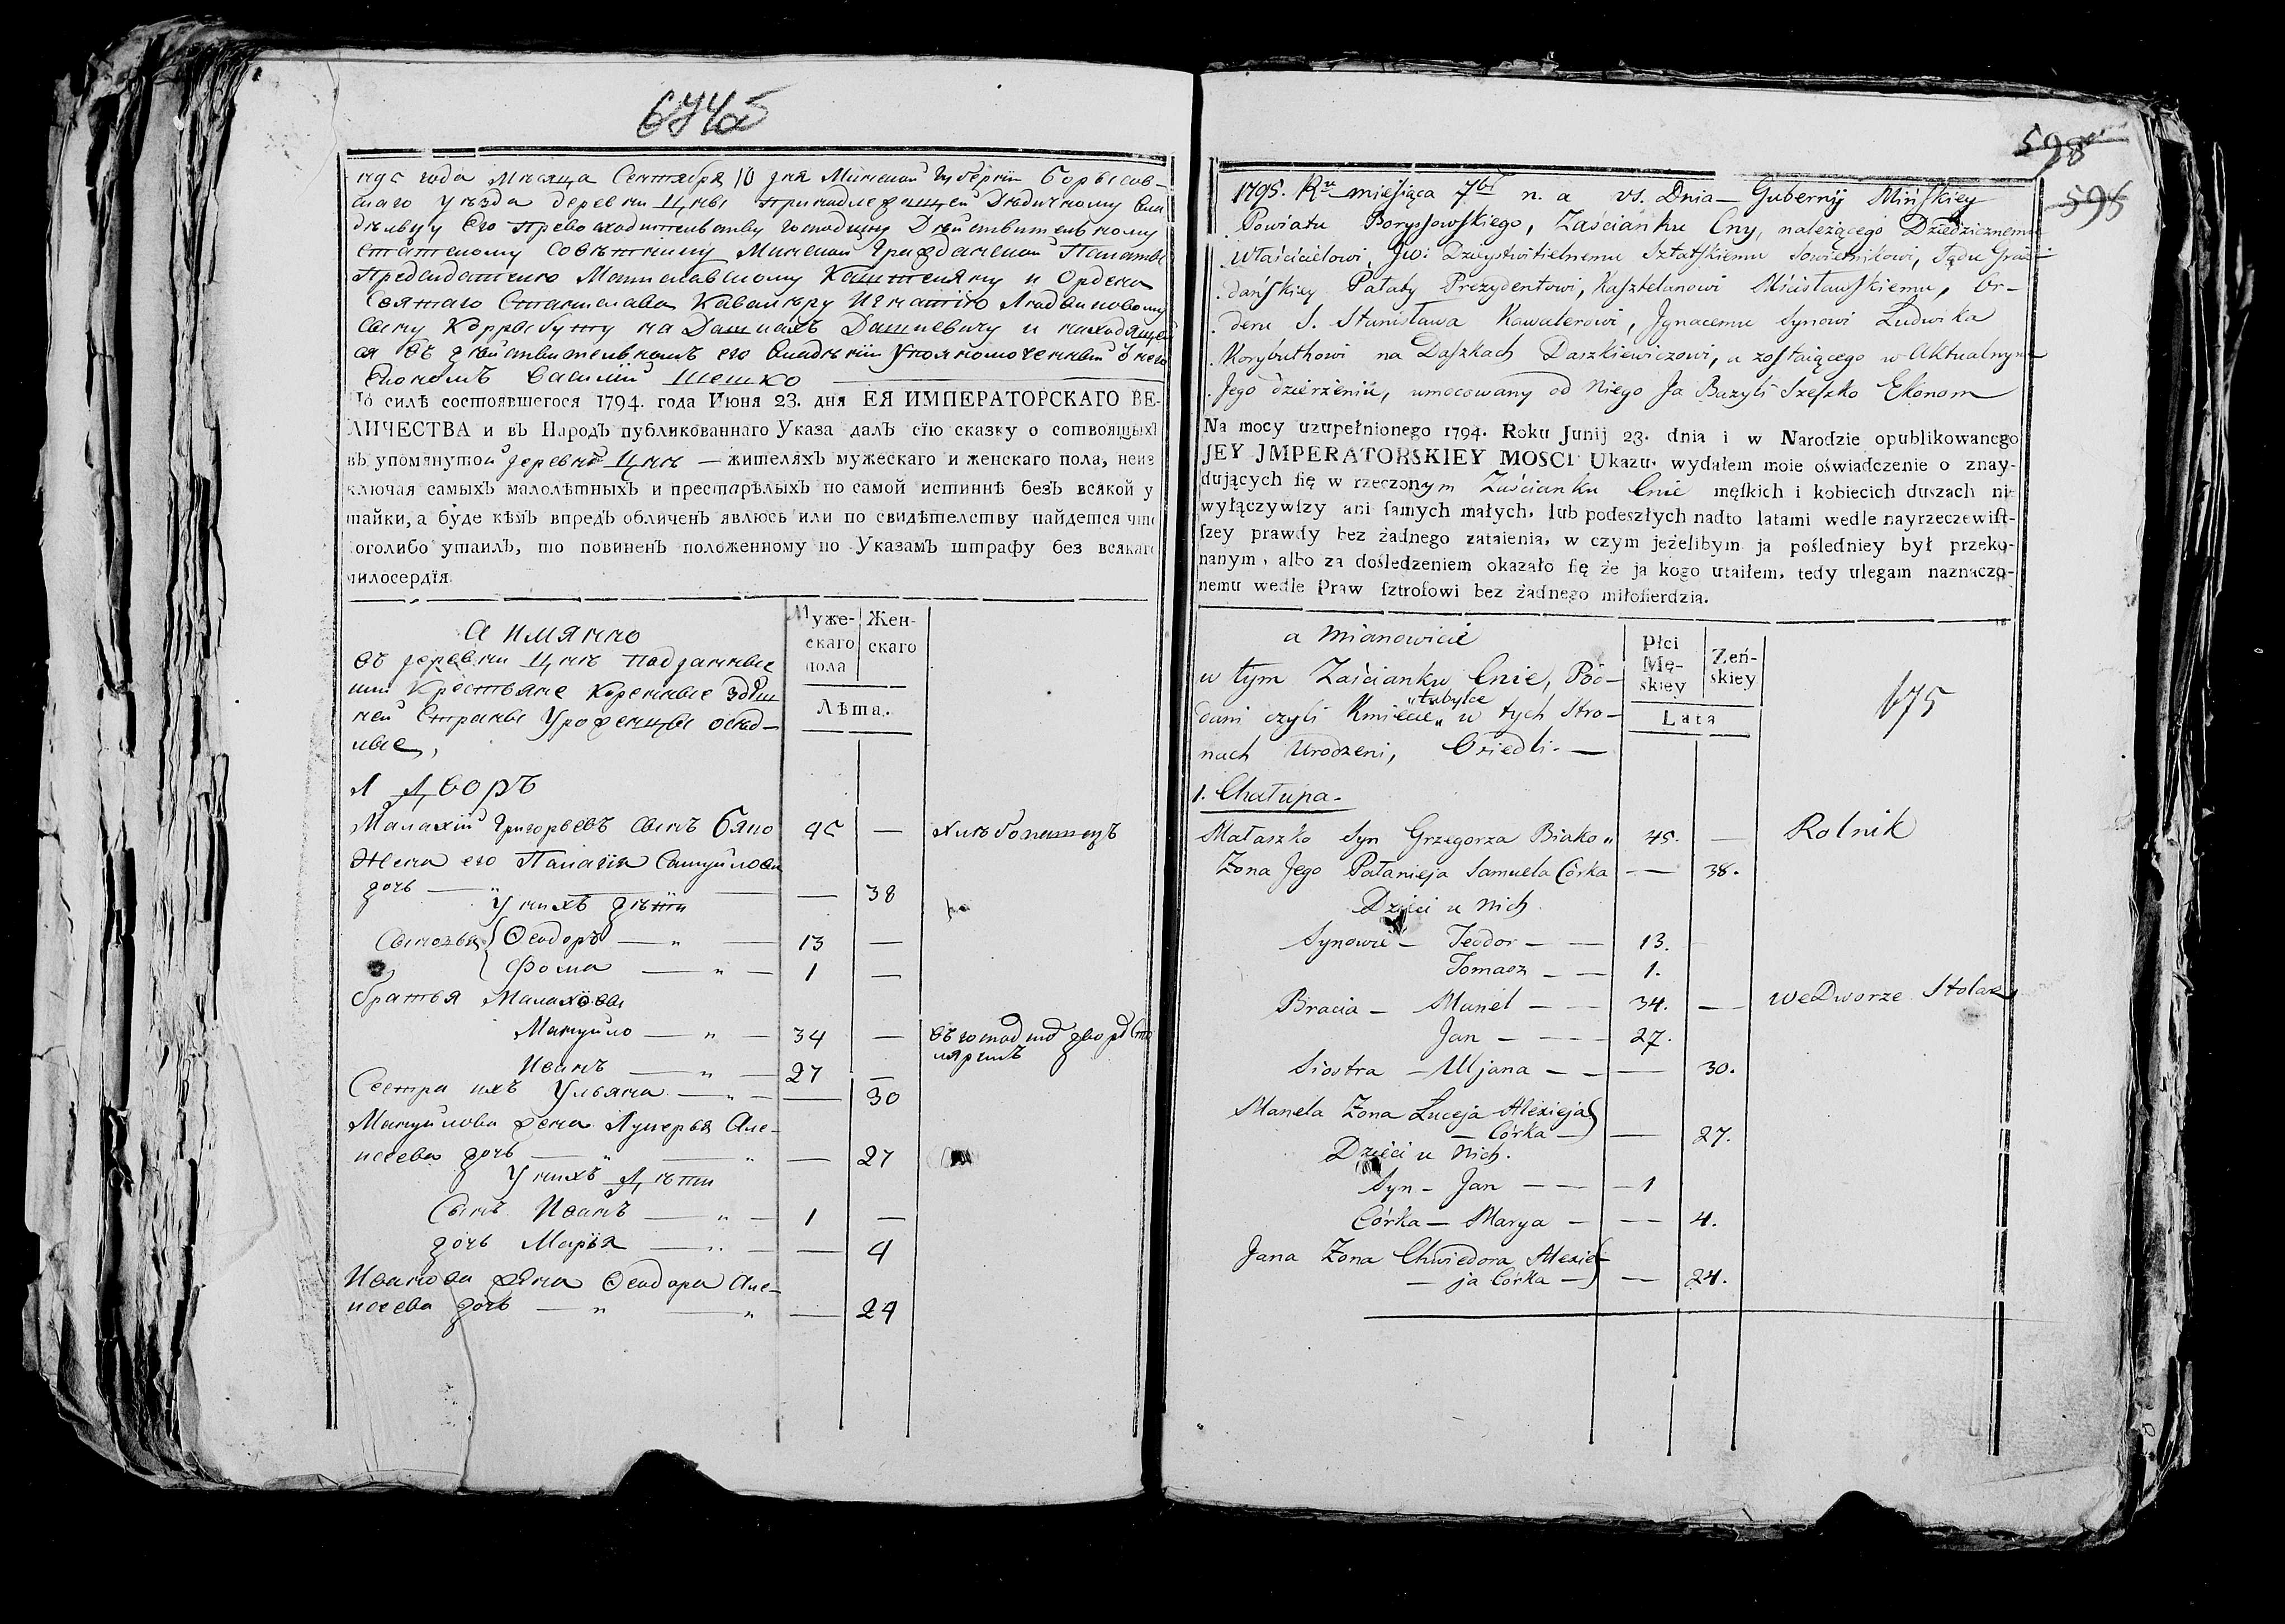 674б
1795 года Мѣсяца Сентября 10 дня Минской губернїи Борысов-
скаго уѣзда деревни Цны принадлежащей Дѣдичному Вла
дѣльцу Его Превосходительству Господину Дѣйствительному
Статскому Совѣтнику Минской Гражданской Палаты
Предсидателю Мстиславскому Каштеляну и Ордена
Святаго Станислава Кавалеру Игнатїю Людвиковому
сыну Коррыбуту на Дашках Дашкевичу и находящей
ся въ дѣйствительномъ его владѣнїи уполномоченный от него
Економъ Василїй Шешко
По силѣ состоявшегося 1794. года Июня 23. дня ЕЯ ИМПЕРАТОРСКАГО ВЕ-
ЛИЧЕСТВА и въ Народъ публикованнаго Указа далъ сїю сказку о сотвоящыхъ
въ упомянутой деревнѣ Цнѣ — жителяхъ мужескаго и женскаго пола, неиз
ключая самыхъ малолѣтныхъ и престарѣлыхъ по самой истиннѣ безъ всякой у
тайки, а буде кѣмъ впредъ обличенъ явлюсь или по свидѣтелству найдется что
коголибо утаилъ, то повиненъ положенному по Указамъ штрафу без всякаго
милосердїя.
А имянно
въ деревни Цнѣ подданные
или Крестьяне коренные здѣш
ней Страны Уроженцы осѣд-
лые,
Муже-
скаго
пола
Жен-
скаго
Лѣта.
1 Дворъ
Малахїй Григорьевъ сынъ Бяко 45 — хлѣбопашецъ
Жена его Палагїя Самуйлова
дочь — „ — — 38
У нихъ дѣти
Сыновья { Ѳеодоръ — „ — 13 —
Фома — „ — 1 —
братья Малахїевы
Мануйло — „ — 34 — въ господ:мъ дворѣ сто
ляромъ
Иванъ — „ — 27 —
Сестра ихъ Ульяна — „ — — 30
Мануйлова жена Лукерья Але-
ксеева дочь — „ — „ — 27
У нихъ Дѣти
Сынъ Иванъ — „ — 1 —
дочь Марїя — „ — — 4
Иванова жена Ѳеодора Але-
ксеева дочь — „ — „ — 24
598
595
1795. Ru miesiąca 7br n. a vs. Dnia — Guberny Mińſkiey
Powiatu Boryſowſkiego, Zaścianku Cny, należącego Dziedzicznemu
Właścicielowi, Jw: Dzieyſtwitielnemu Sztatſkiemu Sowietnikowi, Sądu Graż-
dańſkiey Pałaty Prezydentowi, Kaſztelanowi Mśiſtawſkiemu, Or-
deru S. Stanisława Kawalerowi, Jgnacemu synowi Ludwika
Korybuthowi na Daſzkach Daszkiewiczowi, a zoſtaiącego w Aktualnym
Jego dzierżeniu, umocowany od Niego Ja Bazyli Szeſzko Ekonom
Na mocy uzupełnionego 1794. Roku Junij 23. dnia i w Narodzie opublikowanego
JEY JMPERATORSKIEY MOSCI Ukazu, wydałem moie oświadczenie o znay-
dujących ſię w rzeczonym Zaścianku Cnie męſkich i kobiecich duszach nie
wyłączywſzy ani ſamych małych, lub podeszłych nadto latami wedle nayrzeczewiſt-
ſzey prawdy bez żadnego zataienia, w czym jeżelibym ja pośledniey był przeko-
nanym, albo za dośledzeniem okazało ſię że ja kogo utaiłem, tedy ulegam naznaczo-
nemu wedle Praw ſztrofowi bez żadnego miłoſierdzia.
a Mianowicie
w tym Zaścianku Cnie, Pod-
„tubylce
dani czyli Kmiecie„ w tych Stro-
nach Urodzeni, Osiedli. —
Płci
Mę-
skiey
Zeń-
skiey
Lata
675
1. Chałupa.
Małaszko Syn Grzegorza Biako „ 45. — Rolnik
Zona Jego Pałanieja Samuela Córka — 38.
Dzieci u Nich.
Synowie — Teodor — — 13.
Tomasz — — 1.
Bracia — Manel — — 34. — We Dworze Stolarz
Jan — — — 27.
Siostra — Uljana — — — 30.
Manela Zona Łuceja Alexieja }
— Córka — — 27.
Dzieci u Nich.
Syn — Jan — — 1
Córka — Marya — — 4.
Jana Zona Chwiedora Alexie- }
— ja Córka — — 24.